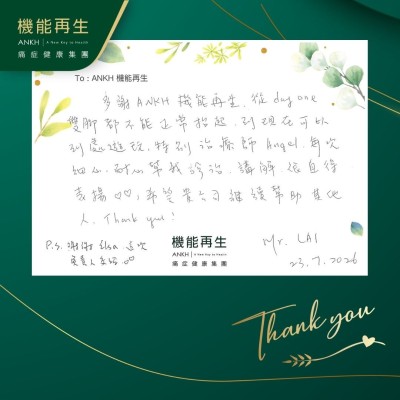 機能再生
ANKH | A New Key to Health
痛症健康集團
To : ANKH 機能再生
多謝 ANKH 機能再生, 從 day one
雙腳都不能正常抬起, 到現在可以
到處遊玩, 特別治療師 Angel, 每次
細心, 耐心幫我診治, 講解, 很值得
表揚♡♡, 希望貴公司繼續幫助其他
人. Thank you!
P.S. 謝謝 Elsa
機能再生
ANKH | A New Key to Health
痛症健康集團
Mr. LAI
23.7.2026
Thank you